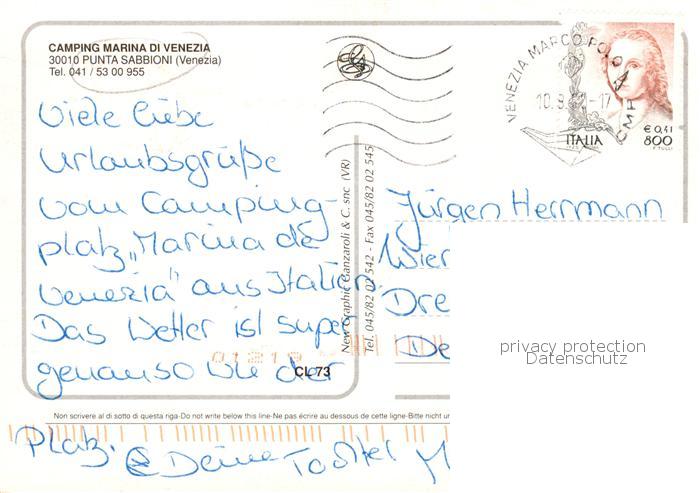 CAMPING MARINA DI VENEZIA
30010 PUNTA SABBIONI (Venezia)
Tel. 041 / 53 00 955
Viele liebe
Urlaubsgrüße
vom Camping-
platz „Marina de
Venezia" aus Italien.
Das Wetter ist super
genauso wie der
Platz.
Deine Tochter M
Jürgen Herrmann
Wier
Dre
De
VENEZIA MARCO POLO
CMP
ITALIA
€ 0,41
800
New Graphic Ganzaroli & C. snc (VR)
Tel. 045/82 02 542 - Fax 045/82 02 545
CL 73
Non scrivere al di sotto di questa riga-Do not write below this line-Ne pas écrire au dessous de cette ligne-Bitte nicht un
privacy protection
Datenschutz